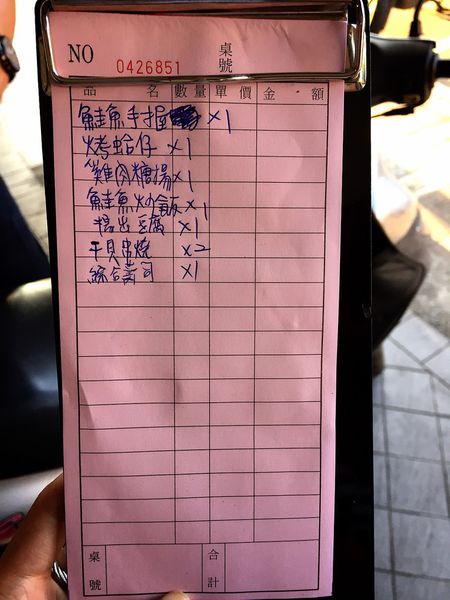 NO 0426851 桌號
品名 數量 單價 金額
鮭魚手握 x1
烤蛤仔 x1
雞肉糖揚 x1
鮭魚炒飯 x1
揚出豆腐 x1
干貝串燒 x2
綜合壽司 x1
桌號 合計